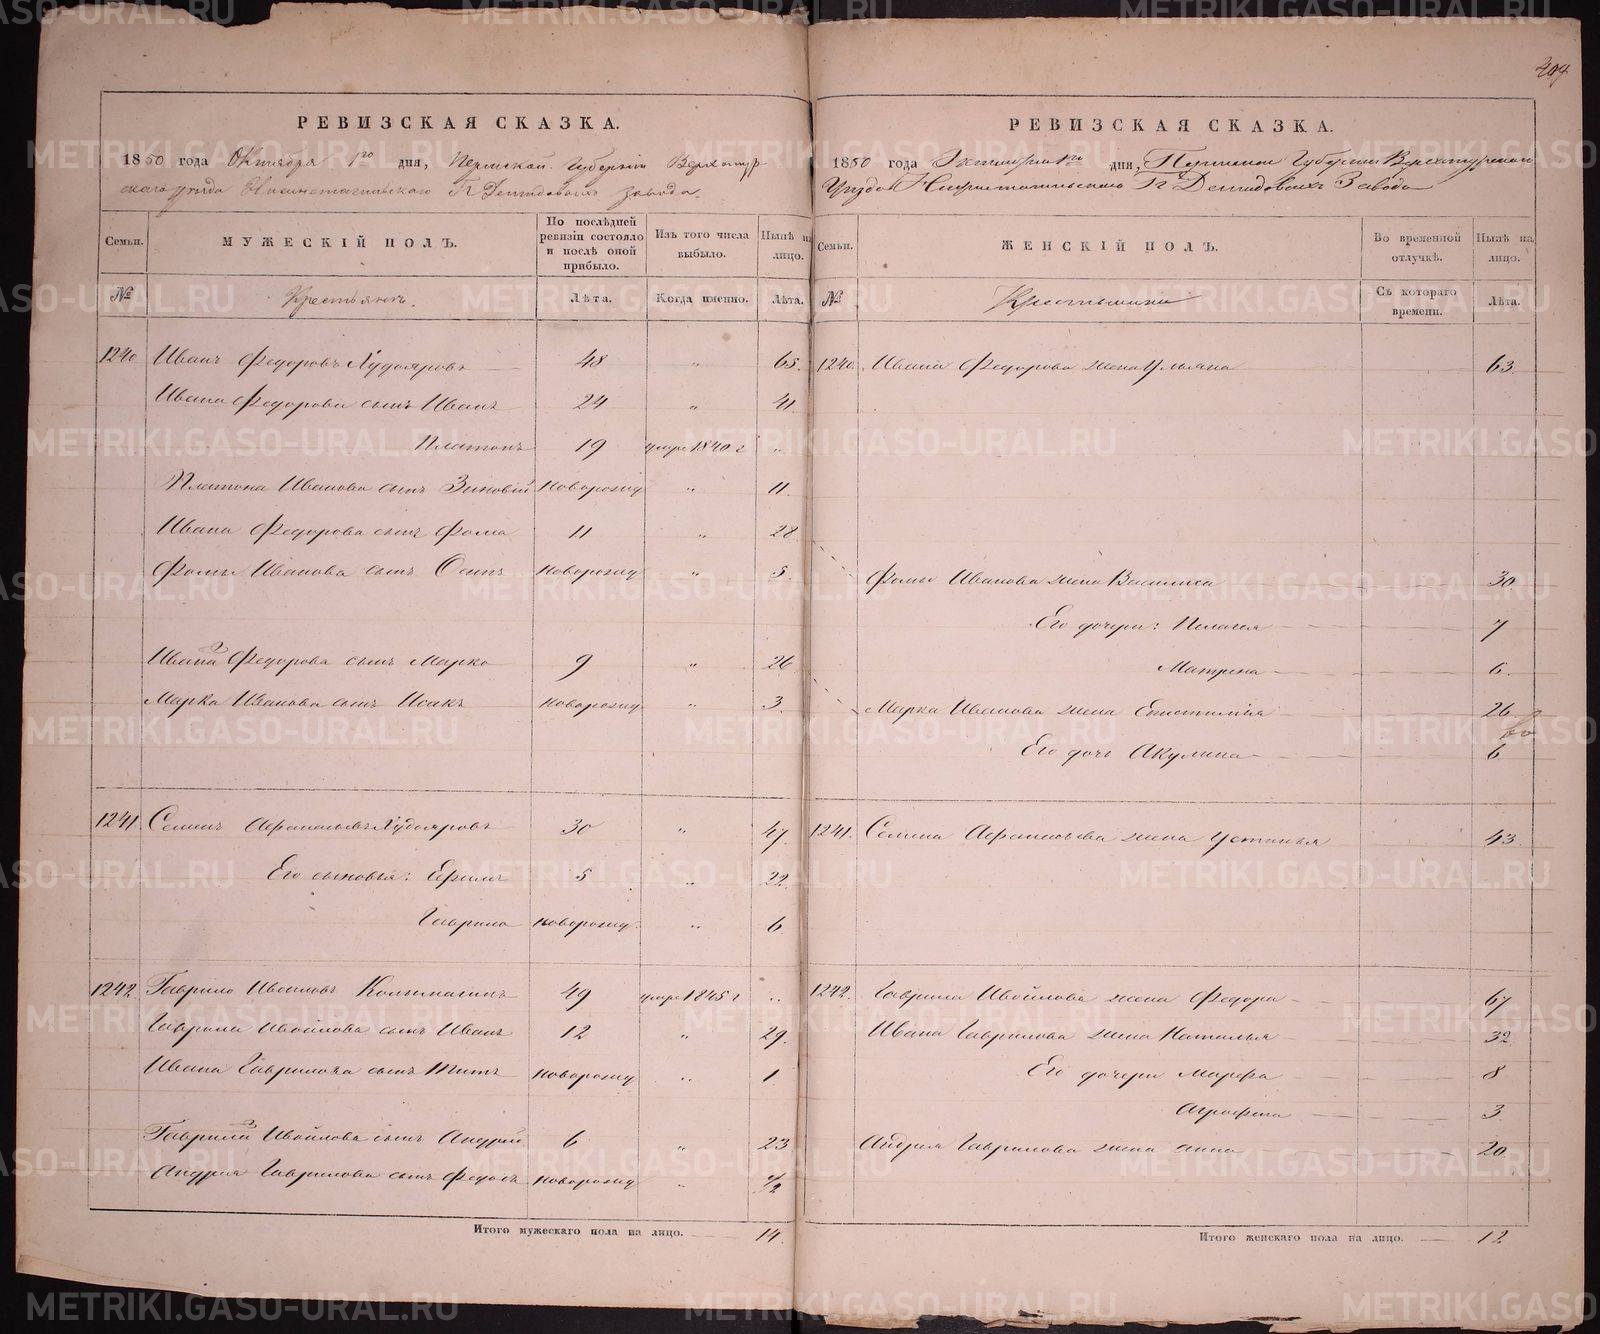 409
РЕВИЗСКАЯ СКАЗКА.
1850 года Октября 1го дня, Пермской Губерніи Верхотур-
скаго уезда Нижнетагильскаго Гг Демидовыхъ завода.
Семьи.
МУЖЕСКІЙ ПОЛЪ.
По послѣдней ревизіи состояло и послѣ оной прибыло.
Изъ того числа выбыло.
Нынѣ на лицо.
№
Крестьянъ.
Лѣта.
Когда именно.
Лѣта.
1240 Иванъ Федоровъ Худояровъ 48 " 65.
Ивана Федорова сынъ Иванъ 24 " 41
Платонъ 19 умре 1840 г "
Платона Иванова сынъ Зиновій новорожд " 11.
Ивана Федорова сынъ Фома 11 " 28
Фомы Иванова сынъ Осипъ новорожд " 5.
Ивана Федорова сынъ Марко 9 " 26
Марка Иванова сынъ Исакъ новорожд " 3.
1241. Семенъ Афанасьевъ Худояровъ 30 " 47.
Его сыновья: Ефимъ 5 " 22
Гаврило новорожд. " 6.
1242. Гаврило Ивойловъ 49 умре 1845 г "
Гаврила Ивойлова сынъ Иванъ 12 " 29.
Ивана Гаврилова сынъ Титъ новорожд " 1
Гаврила Ивойлова сынъ Андрей 6 " 23
Андрея Гаврилова сынъ Федосъ новорожд " 1/2
Итого мужескаго пола на лицо. 14.
РЕВИЗСКАЯ СКАЗКА.
1850 года Октября 1го дня, Пермской Губерніи Верхотурскаго
Уезда Нижнетагильскаго Гг Демидовыхъ Завода
Семьи.
ЖЕНСКІЙ ПОЛЪ.
Во временной отлучкѣ.
Нынѣ на лицо.
№
Крестьянки
Съ котораго времени.
Лѣта.
1240. Ивана Федорова жена Ульяна 63.
Фомы Иванова жена Василиса 30
Его дочери: Пелагея 7
Матрена 6.
Марка Иванова жена Епистимія 26
Его дочь Акулина 6
1241. Семена Афанасьева жена Устинья 43.
1242. Гаврила Ивойлова жена Федора 67
Ивана Гаврилова жена Наталья 32
Его дочери Марфа 8
Аграфена 3
Андрея Гаврилова жена Анна 20
Итого женскаго пола на лицо. 12
METRIKI.GASO-URAL.RU